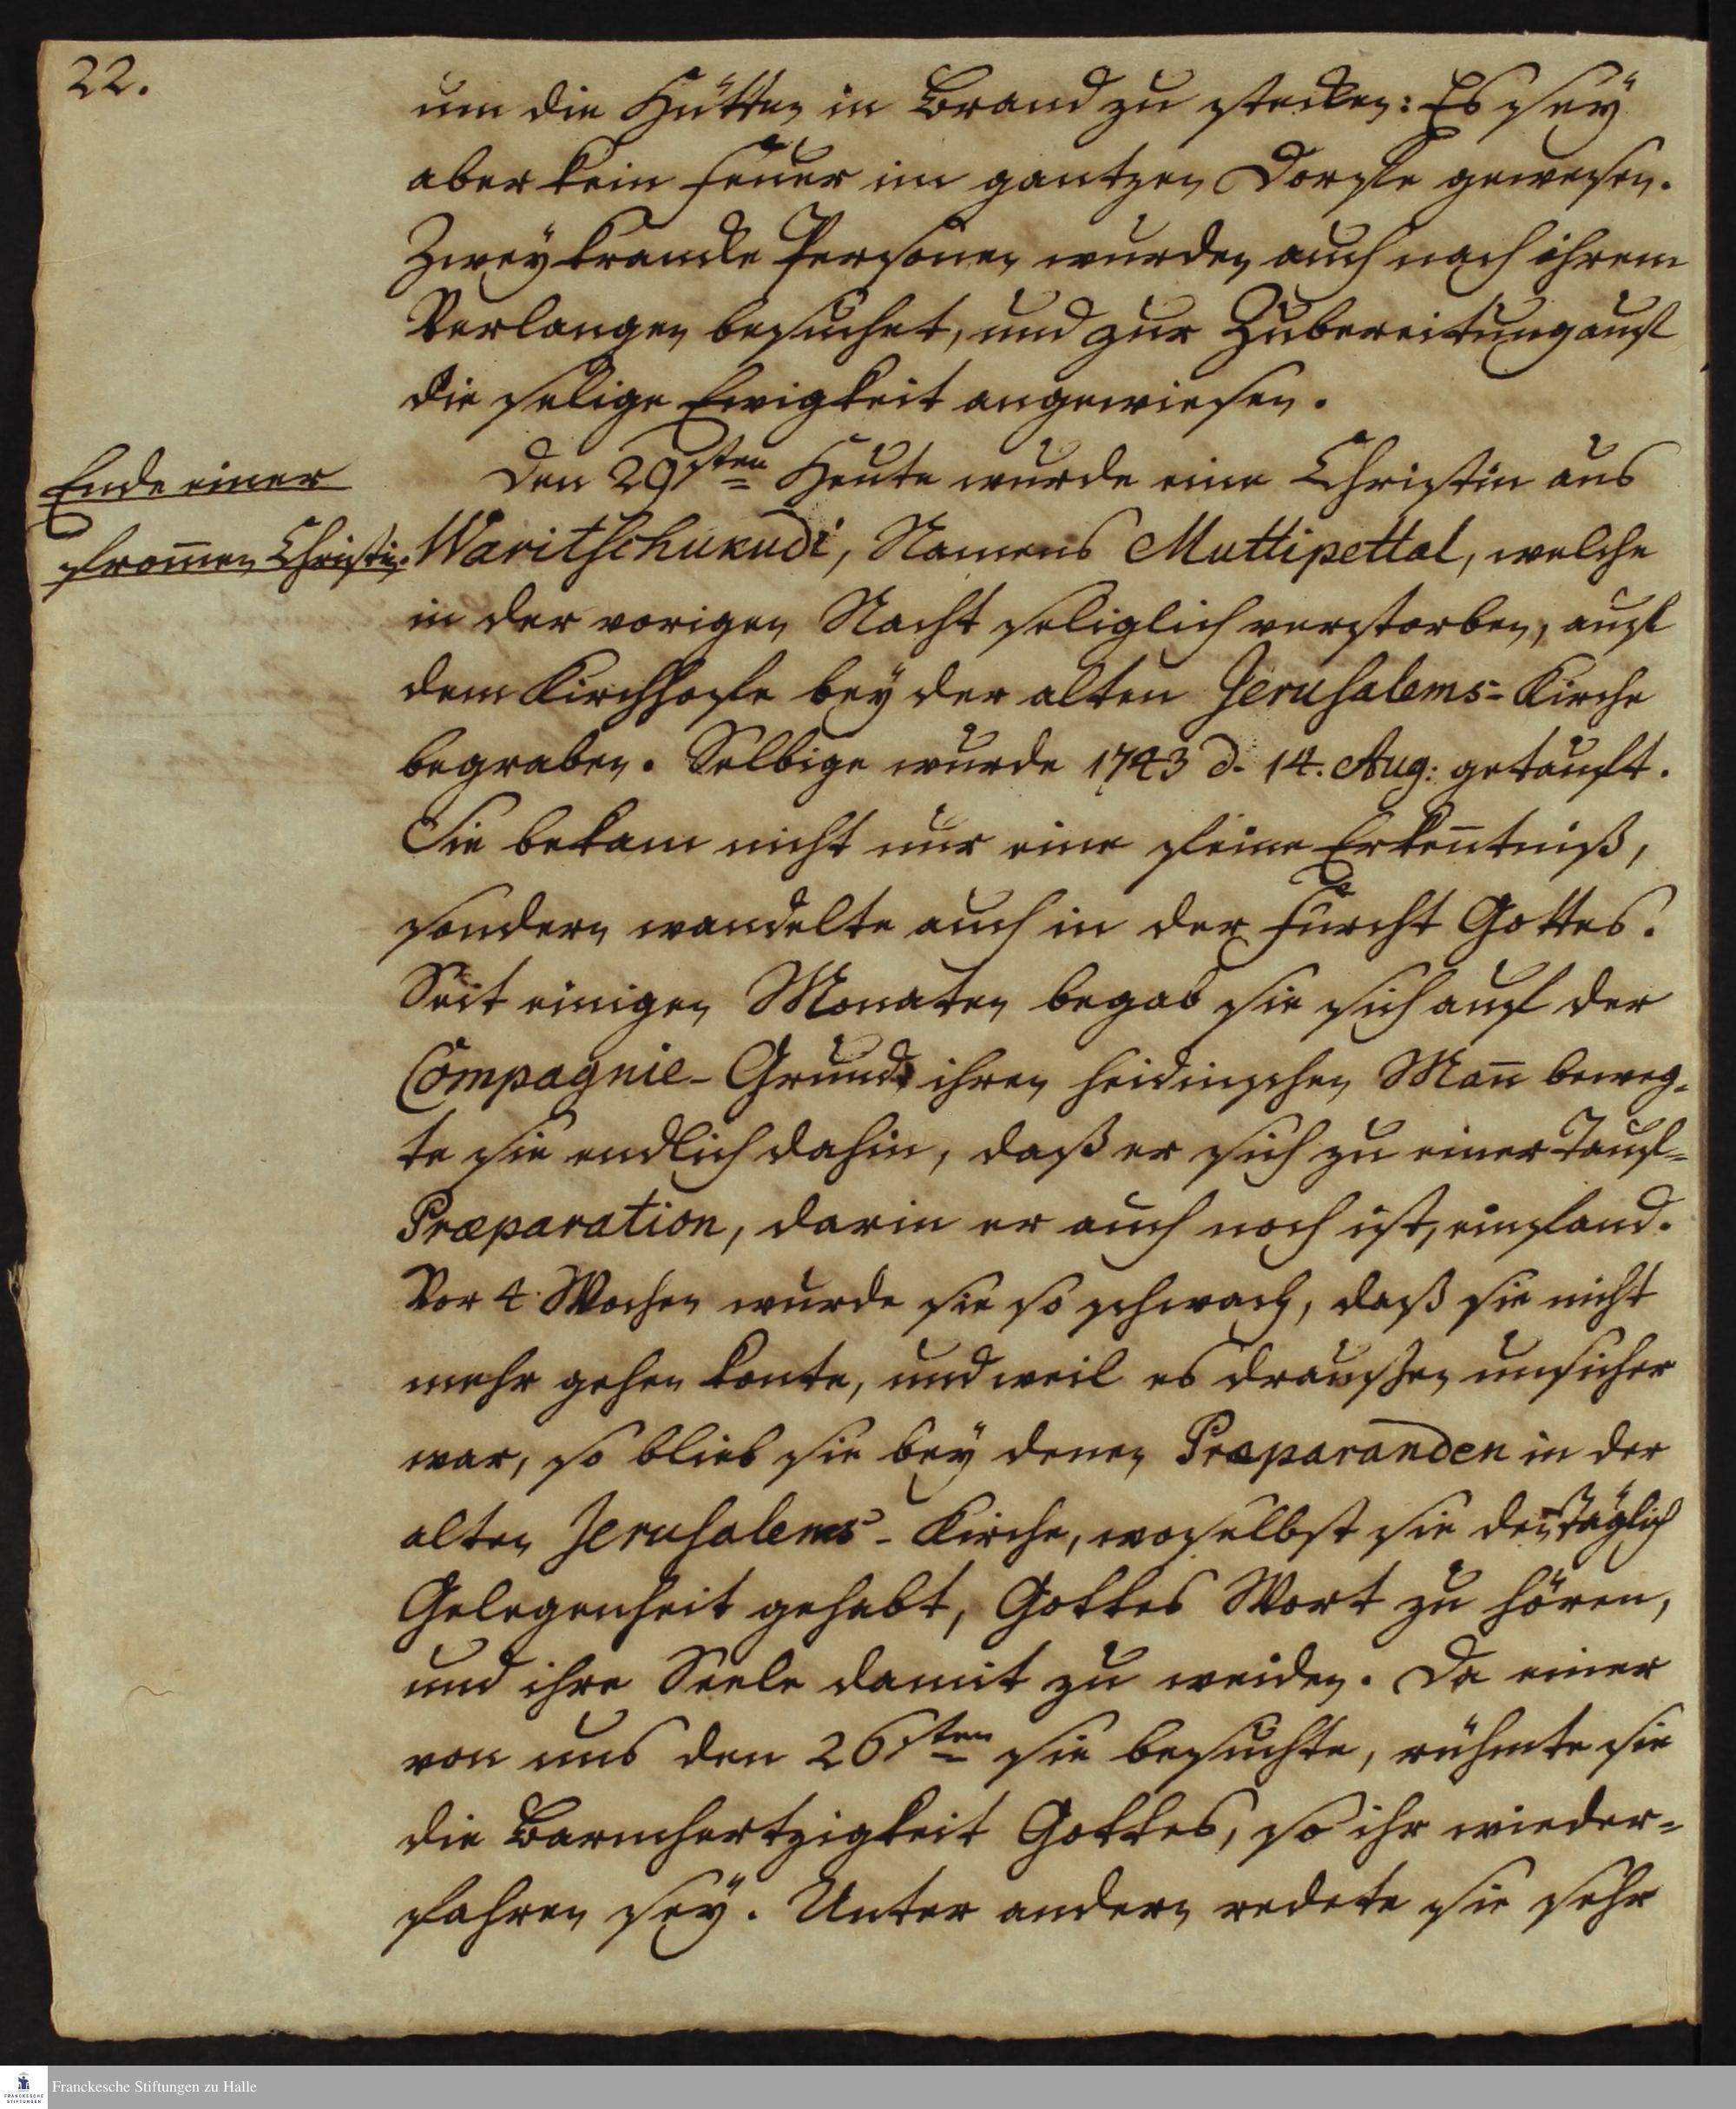 22.
um die Hütten in Brand zu stecken: Es seÿ
aber kein Feuer im gantzen Dorfe gewesen.
Zweÿ krancke Personen wurden auch nach ihrem
Verlangen besuchet, und zur Zubereitung auf
die selige Ewigkeit angewiesen.
Ende einer
from̅en Christin.
Den 29sten Heute wurde eine Christin aus
Waritschukudi, Namens Muttipettal, welche
in der vorigen Nacht seliglich verstorben, auf
dem Kirchhofe beÿ der alten Jerusalems-Kirche
begraben. Selbige wurde 1743 d. 14. Aug: getauft.
Sie bekam nicht nur eine feine Erken̅tniß,
sondern wandelte auch in der Furcht Gottes.
Seit einigen Monaten begab sie sich auf der
Compagnie-Grund, ihren heidnischen Man̅ beweg-
te sie endlich dahin, daß er sich zu einer Tauf-
Præparation, darin er auch noch ist, einfand.
Vor 4. Wochen wurde sie so schwach, daß sie nicht
mehr gehen konte, und weil es draussen unsicher
war, so blieb sie beÿ denen Præparanden in der
alten Jerusalems-Kirche, woselbst sie den̅ täglich
Gelegenheit gehabt, Gottes Wort zu hören,
und ihre Seele damit zu weiden. Da einer
von uns den 26sten sie besuchte, rühmte sie
die Barmhertzigkeit Gottes, so ihr wieder-
fahren seÿ. Unter andern redete sie sehr
Franckesche Stiftungen zu Halle
FRANCKESCHE
STIFTUNGEN